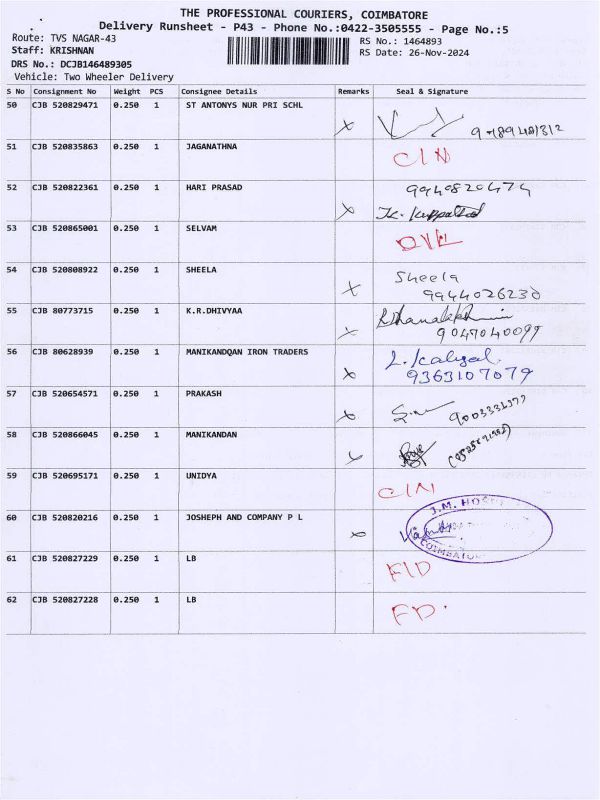 THE PROFESSIONAL COURIERS, COIMBATORE
Delivery Runsheet - P43 - Phone No.:0422-3505555 - Page No.:5
Route: TVS NAGAR-43
RS No.: 1464893
Staff: KRISHNAN
RS Date: 26-Nov-2024
DRS No.: DCJB146489305
Vehicle: Two Wheeler Delivery
S No Consignment No Weight PCS Consignee Details Remarks Seal & Signature
50 CJB 520829471 0.250 1 ST ANTONYS NUR PRI SCHL
51 CJB 520835863 0.250 1 JAGANATHNA CIN
52 CJB 520822361 0.250 1 HARI PRASAD 9940820474
53 CJB 520865001 0.250 1 SELVAM
54 CJB 520808922 0.250 1 SHEELA Sheela
9944026230
55 CJB 80773715 0.250 1 K.R.DHIVYAA
9047040099
56 CJB 80628939 0.250 1 MANIKANDQAN IRON TRADERS
9363107079
57 CJB 520654571 0.250 1 PRAKASH
58 CJB 520866045 0.250 1 MANIKANDAN
59 CJB 520695171 0.250 1 UNIDYA CIN
60 CJB 520820216 0.250 1 JOSHEPH AND COMPANY P L J.M.
61 CJB 520827229 0.250 1 LB
62 CJB 520827228 0.250 1 LB FD.